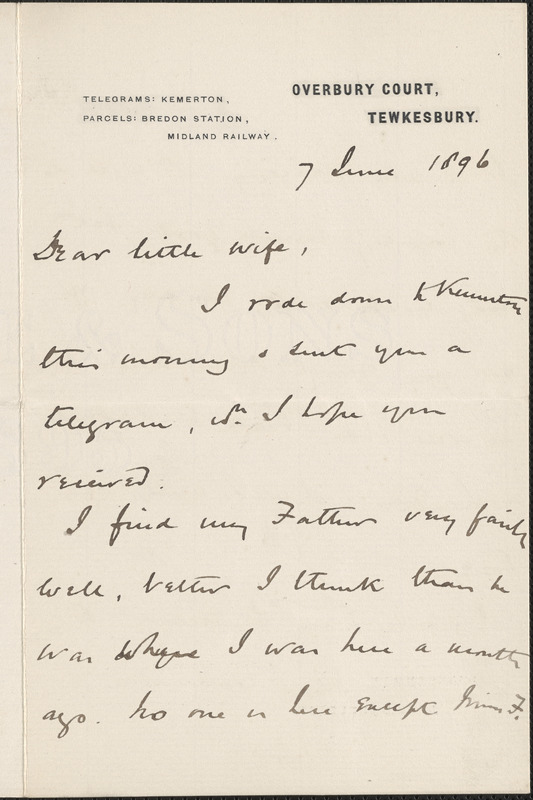 TELEGRAMS: KEMERTON,
PARCELS: BREDON STATION,
MIDLAND RAILWAY.
OVERBURY COURT,
TEWKESBURY.
7 June 1896
Dear little wife,
I rode down to Kemerton
this morning & sent you a
telegram, wh. I hope you
received.
I find my Father very fairly
well, better I think than he
was when I was here a month
ago. No one is here except